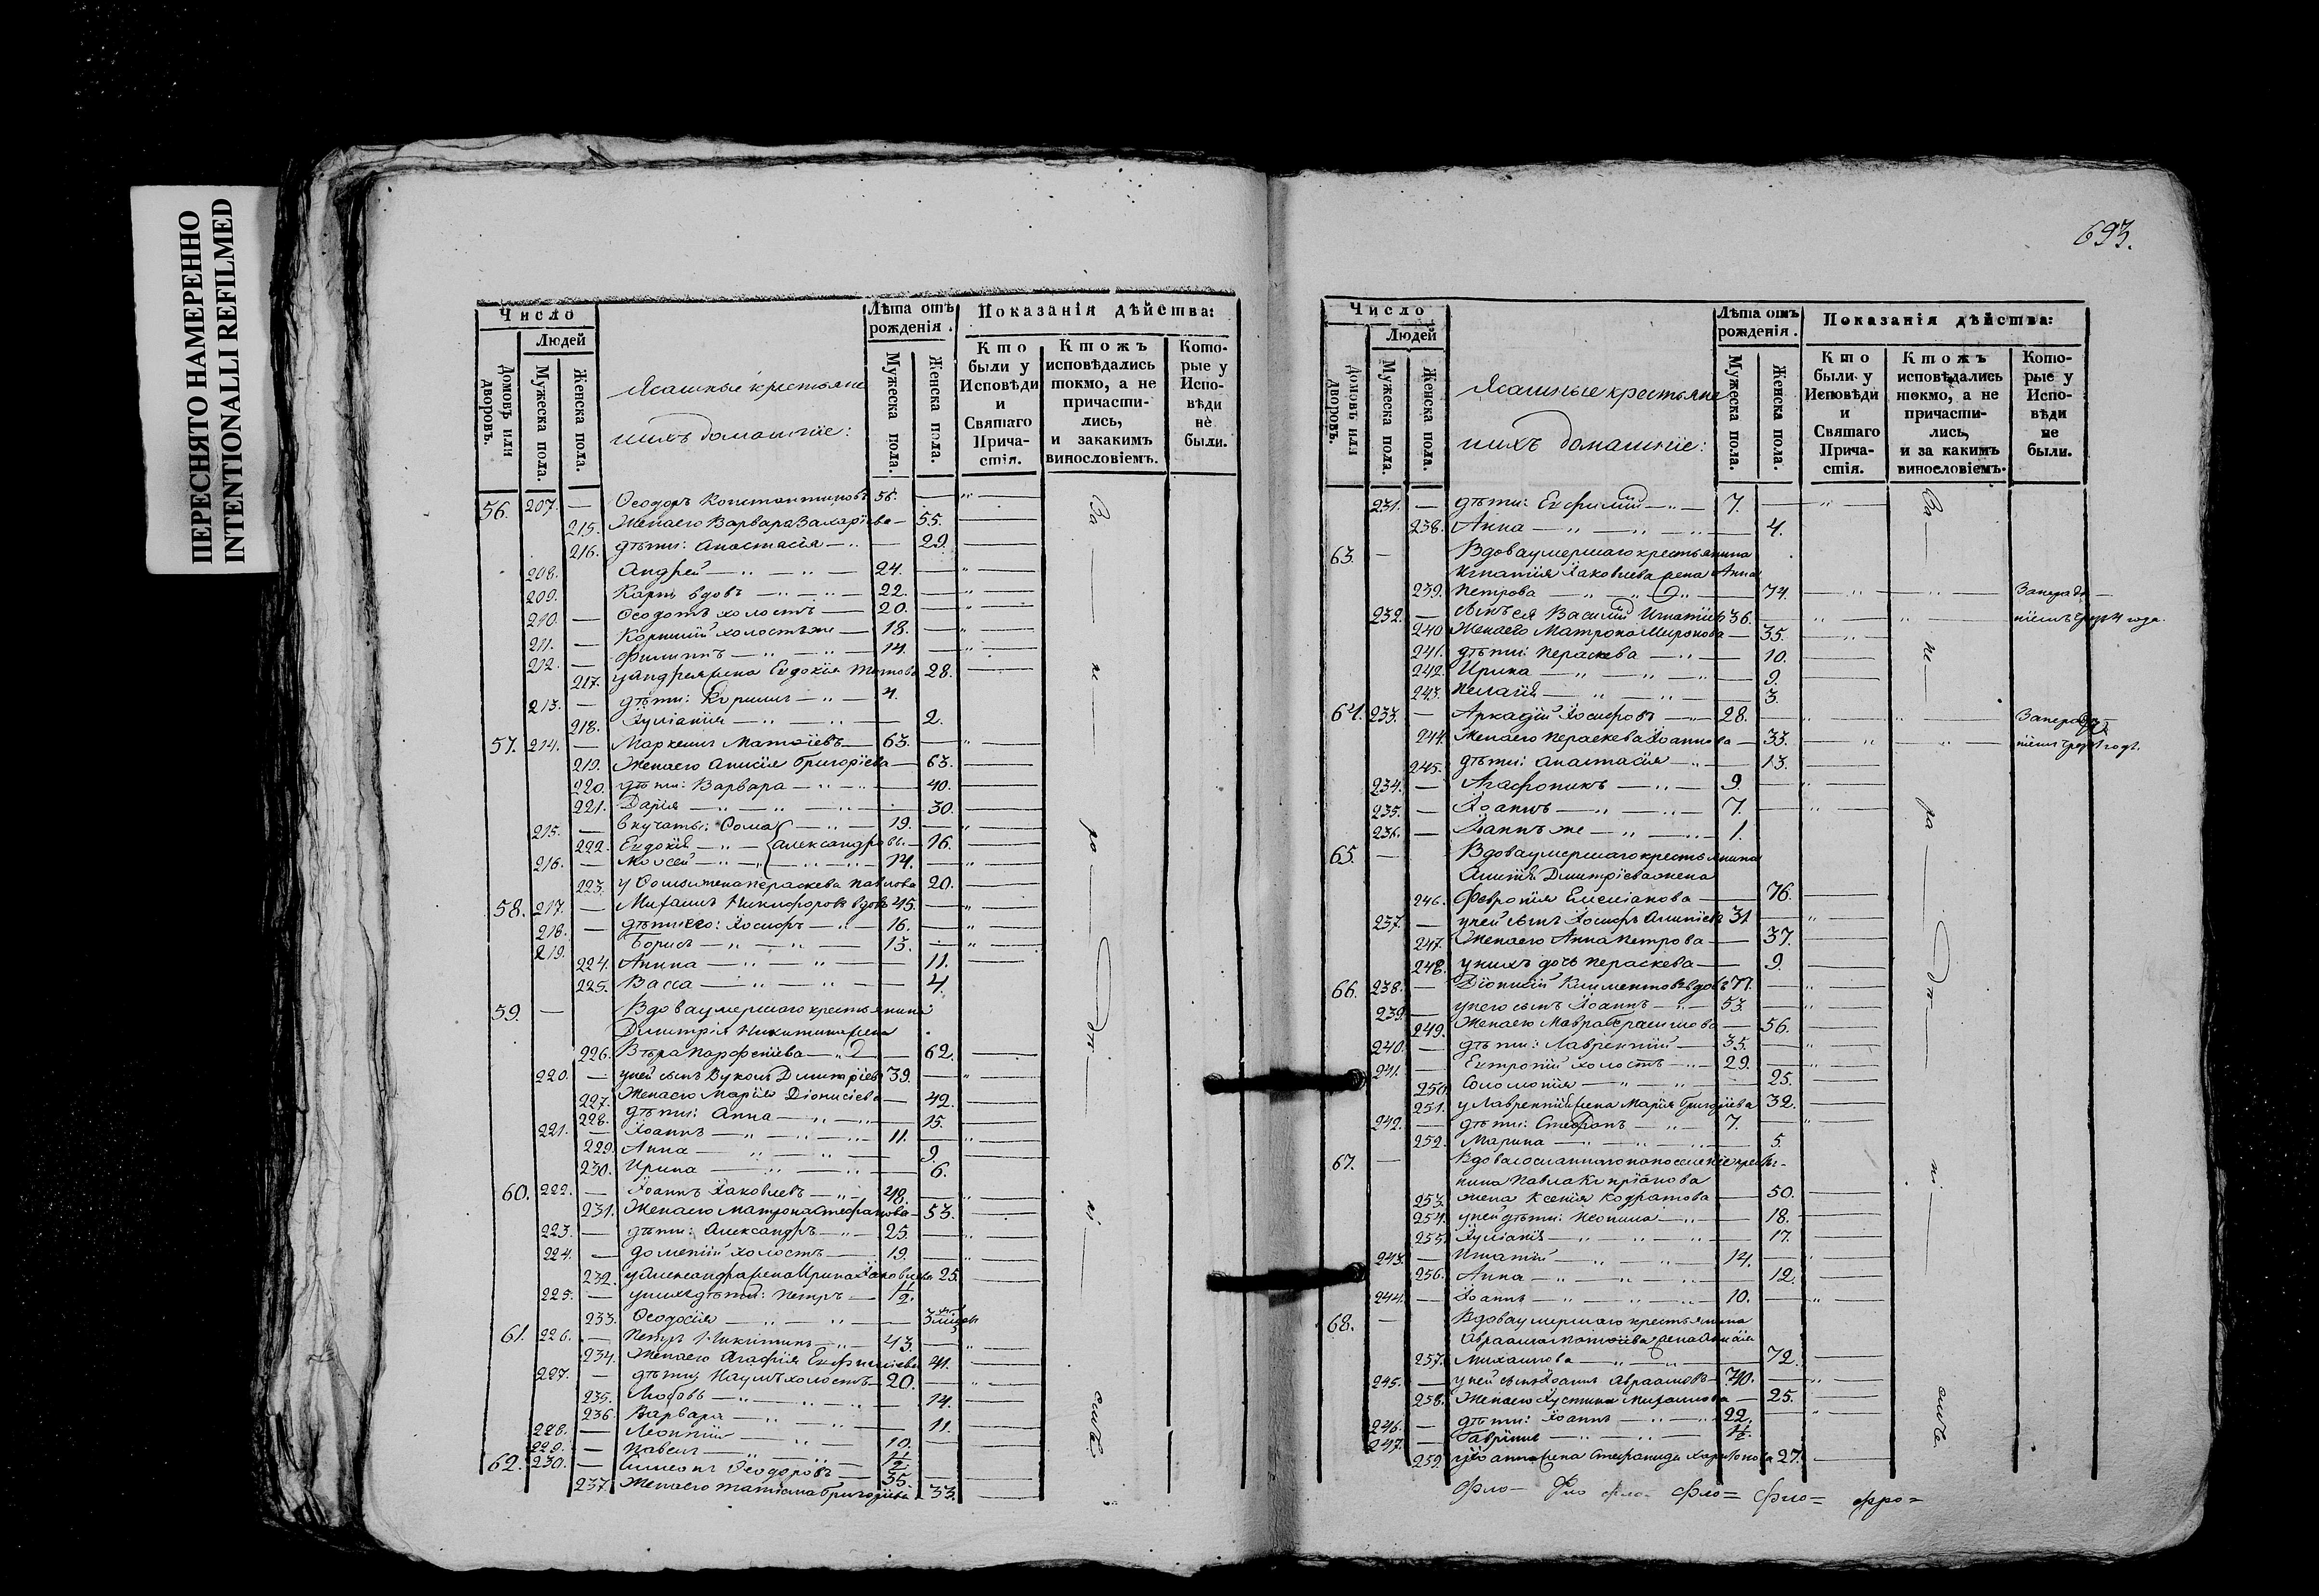 ПЕРЕСНЯТО НАМЕРЕННО
INTENTIONALLI REFILMED
Число
Людей
Домовъ или дворовъ.
Мужеска пола.
Женска пола.
Ясашные крестьяне
ихъ домашніе:
Лѣта отъ рожденія.
Мужеска пола.
Женска пола.
Показанія дѣйства:
Кто были у Исповѣди и Святаго Прича-стія.
Ктожъ исповѣдались токмо, а не причасти-лись, и закакимъ винословіемъ.
Кото-рые у Испо-вѣди не были.
56. 207. — Ѳеодоръ Константиновъ 56.
215. Жена его Варвара Захаріева — 55.
216. дѣти: Анастасія — 29.
208. Андрей — 24.
209. Карпъ вдовъ — 22.
210. — Ѳеодотъ холостъ — 20.
211. — Корнилій холостъ же — 18.
212. — Филиппъ — 14.
217. у Андрея жена Евдокія Титова 28.
213. — дѣти: Кирилъ — 4.
218. Іуліанія — 2.
57. 214. — Маркелъ Матѳіевъ — 63.
219. Жена его Анисія Григоріева — 63.
220. дѣти: Варвара — 40.
221. Дарія — 30.
215. — внучаты: Ѳома — 19.
222. Евдокія — Александровы — 16.
216. — Моѵсей — 14.
223. у Ѳомы жена Параскева Павлова 20.
58. 217. — Михаилъ Никифоровъ вдовъ 45.
218. — дѣти его: Іосифъ — 16.
219. Борисъ — 13.
224. Анна — 11.
225. Васса — 4.
59. — Вдова умершаго крестьянина
Димитрія Никитина жена
226. Вѣра Парфеніева — 62.
220. — у ней сынъ Вуколъ Димитріевъ 39.
227. Жена его Марія Діонисіева — 42.
228. дѣти: Анна — 15.
221. — Іоаннъ — 11.
229. Анна — 9.
230. Ирина — 6.
60. 222. — Іоаннъ Іаковлевъ — 48.
231. Жена его Матрона Стефанова — 53.
223. — дѣти: Александръ — 25.
224. — Дометій холостъ — 19.
232. у Александра жена Ирина Іаковлева 25.
225. — у нихъ дѣти: Петръ — 1/2.
233. Ѳеодосія — 3
61. 226. — Петръ Никитинъ — 43.
234. Жена его Агафія Евфиміева 41.
227. — дѣти: Наумъ холостъ — 20.
235. Любовь — 14.
236. Варвара — 11.
228. — Леонтій — 10.
229. — Павелъ —
62. 230. — Симеонъ Ѳеодоровъ — 35.
237. Жена его Татіана Григоріева — 33.
За
не
ра
дѣ
ні
емъ
693.
Число
Людей
Домовъ или дворовъ.
Мужеска пола.
Женска пола.
Ясашные крестьяне
ихъ домашніе:
Лѣта отъ рожденія.
Мужеска пола.
Женска пола.
Показанія дѣйства:
Кто были у Исповѣди и Святаго Прича-стія.
Ктожъ исповѣдались токмо, а не причасти-лись, и за какимъ винословіемъ.
Кото-рые у Испо-вѣди не были.
231. — дѣти: Евфимій — 7.
238. Анна — 4.
63. — Вдова умершаго крестьянина
Игнатія Іаковлева жена Анна
239. Петрова — 74. Занерадѣ-
232. — сынъ ея Василій Игнатіевъ 36. ніемъ года.
240. Жена его Матрона Миронова — 35.
241. дѣти: Параскева — 10.
242. Ирина — 9.
243. Пелагія — 3.
64. 233. — Аркадій Іосифовъ — 28. Занерадѣ-
244. Жена его Параскева Іоаннова — 33. ніемъ
245. дѣти: Анастасія — 13.
234. — Агафоникъ — 9.
235. — Іоаннъ — 7.
236. — Іоаннъ же — 1.
65. — Вдова умершаго крестьянина
Димитріева жена
246. Февронія Емеліанова — 76.
237. — у ней сынъ Іосифъ 31
247. Жена его Анна Петрова — 37.
248. у нихъ дочь Параскева — 9.
66. 238. — Діонисій Климентовъ вдовъ 77.
239. — у него сынъ Іоаннъ — 53.
249. Жена его Мавра Герасимова — 56.
240. — дѣти: Лаврентій — 35.
241. — Евтропій холостъ — 29.
250. Соломонія — 25.
251. у Лаврентія жена Марія Григоріева 32.
242. — дѣти: Стефанъ — 7.
252. Марина — 5.
67. — Вдова сосланнаго на поселеніе кресть-
нина Павла Кипріанова
253. жена Ксенія Кодратова — 50.
254. у ней дѣти: Неонила — 18.
255. Іуліанія — 17.
243. — Игнатій — 14.
256. Анна — 12.
244. — Іоаннъ — 10.
68. — Вдова умершаго крестьянина
Авраама Матѳіева жена Анисія
257. Михаилова — 72.
245. — у ней сынъ Іоаннъ Авраамовъ —
258. Жена его Іустина Михаилова — 25.
246. — дѣти: Іоаннъ — 22.
247. — Гавріилъ —
259. у Іоанна жена Стефанида Харитонова 27.
За
не
ра
дѣ
ні
емъ